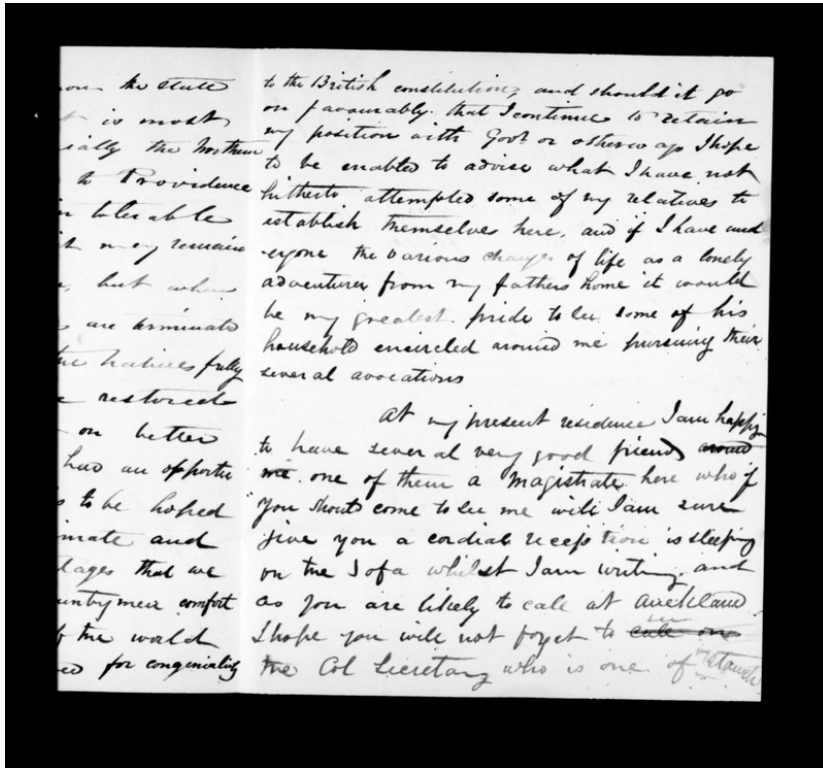 on the state
t is most
ially the Northern
to Providence
in tolerable
it may remain
, but when
s are terminate
the Natives fully
e restored
on better
had an opportu
s to be hoped
mate and
tages that we
untrymen comfort
f the world
ed for congeniality
to the British constitution, and should it go
on favourably that I continue to retain
my position with Govt or otherways I hope
to be enabled to advise what I have not
hitherto attempted some of my relatives to
establish themselves here, and if I have und
ergone the various changes of life as a lonely
adventurer from my fathers home it would
be my greatest pride to see some of his
household encircled around me pursuing their
several avocations
At my present residence I am happy
to have several very good friends around
me one of them a Magistrate here who if
you should come to see me will I am sure
give you a cordial reception is sleeping
on the Sofa whilst I am writing, and
as you are likely to call at Auckland
I hope you will not forget to call on see
the Col Secretary who is one of my staunch